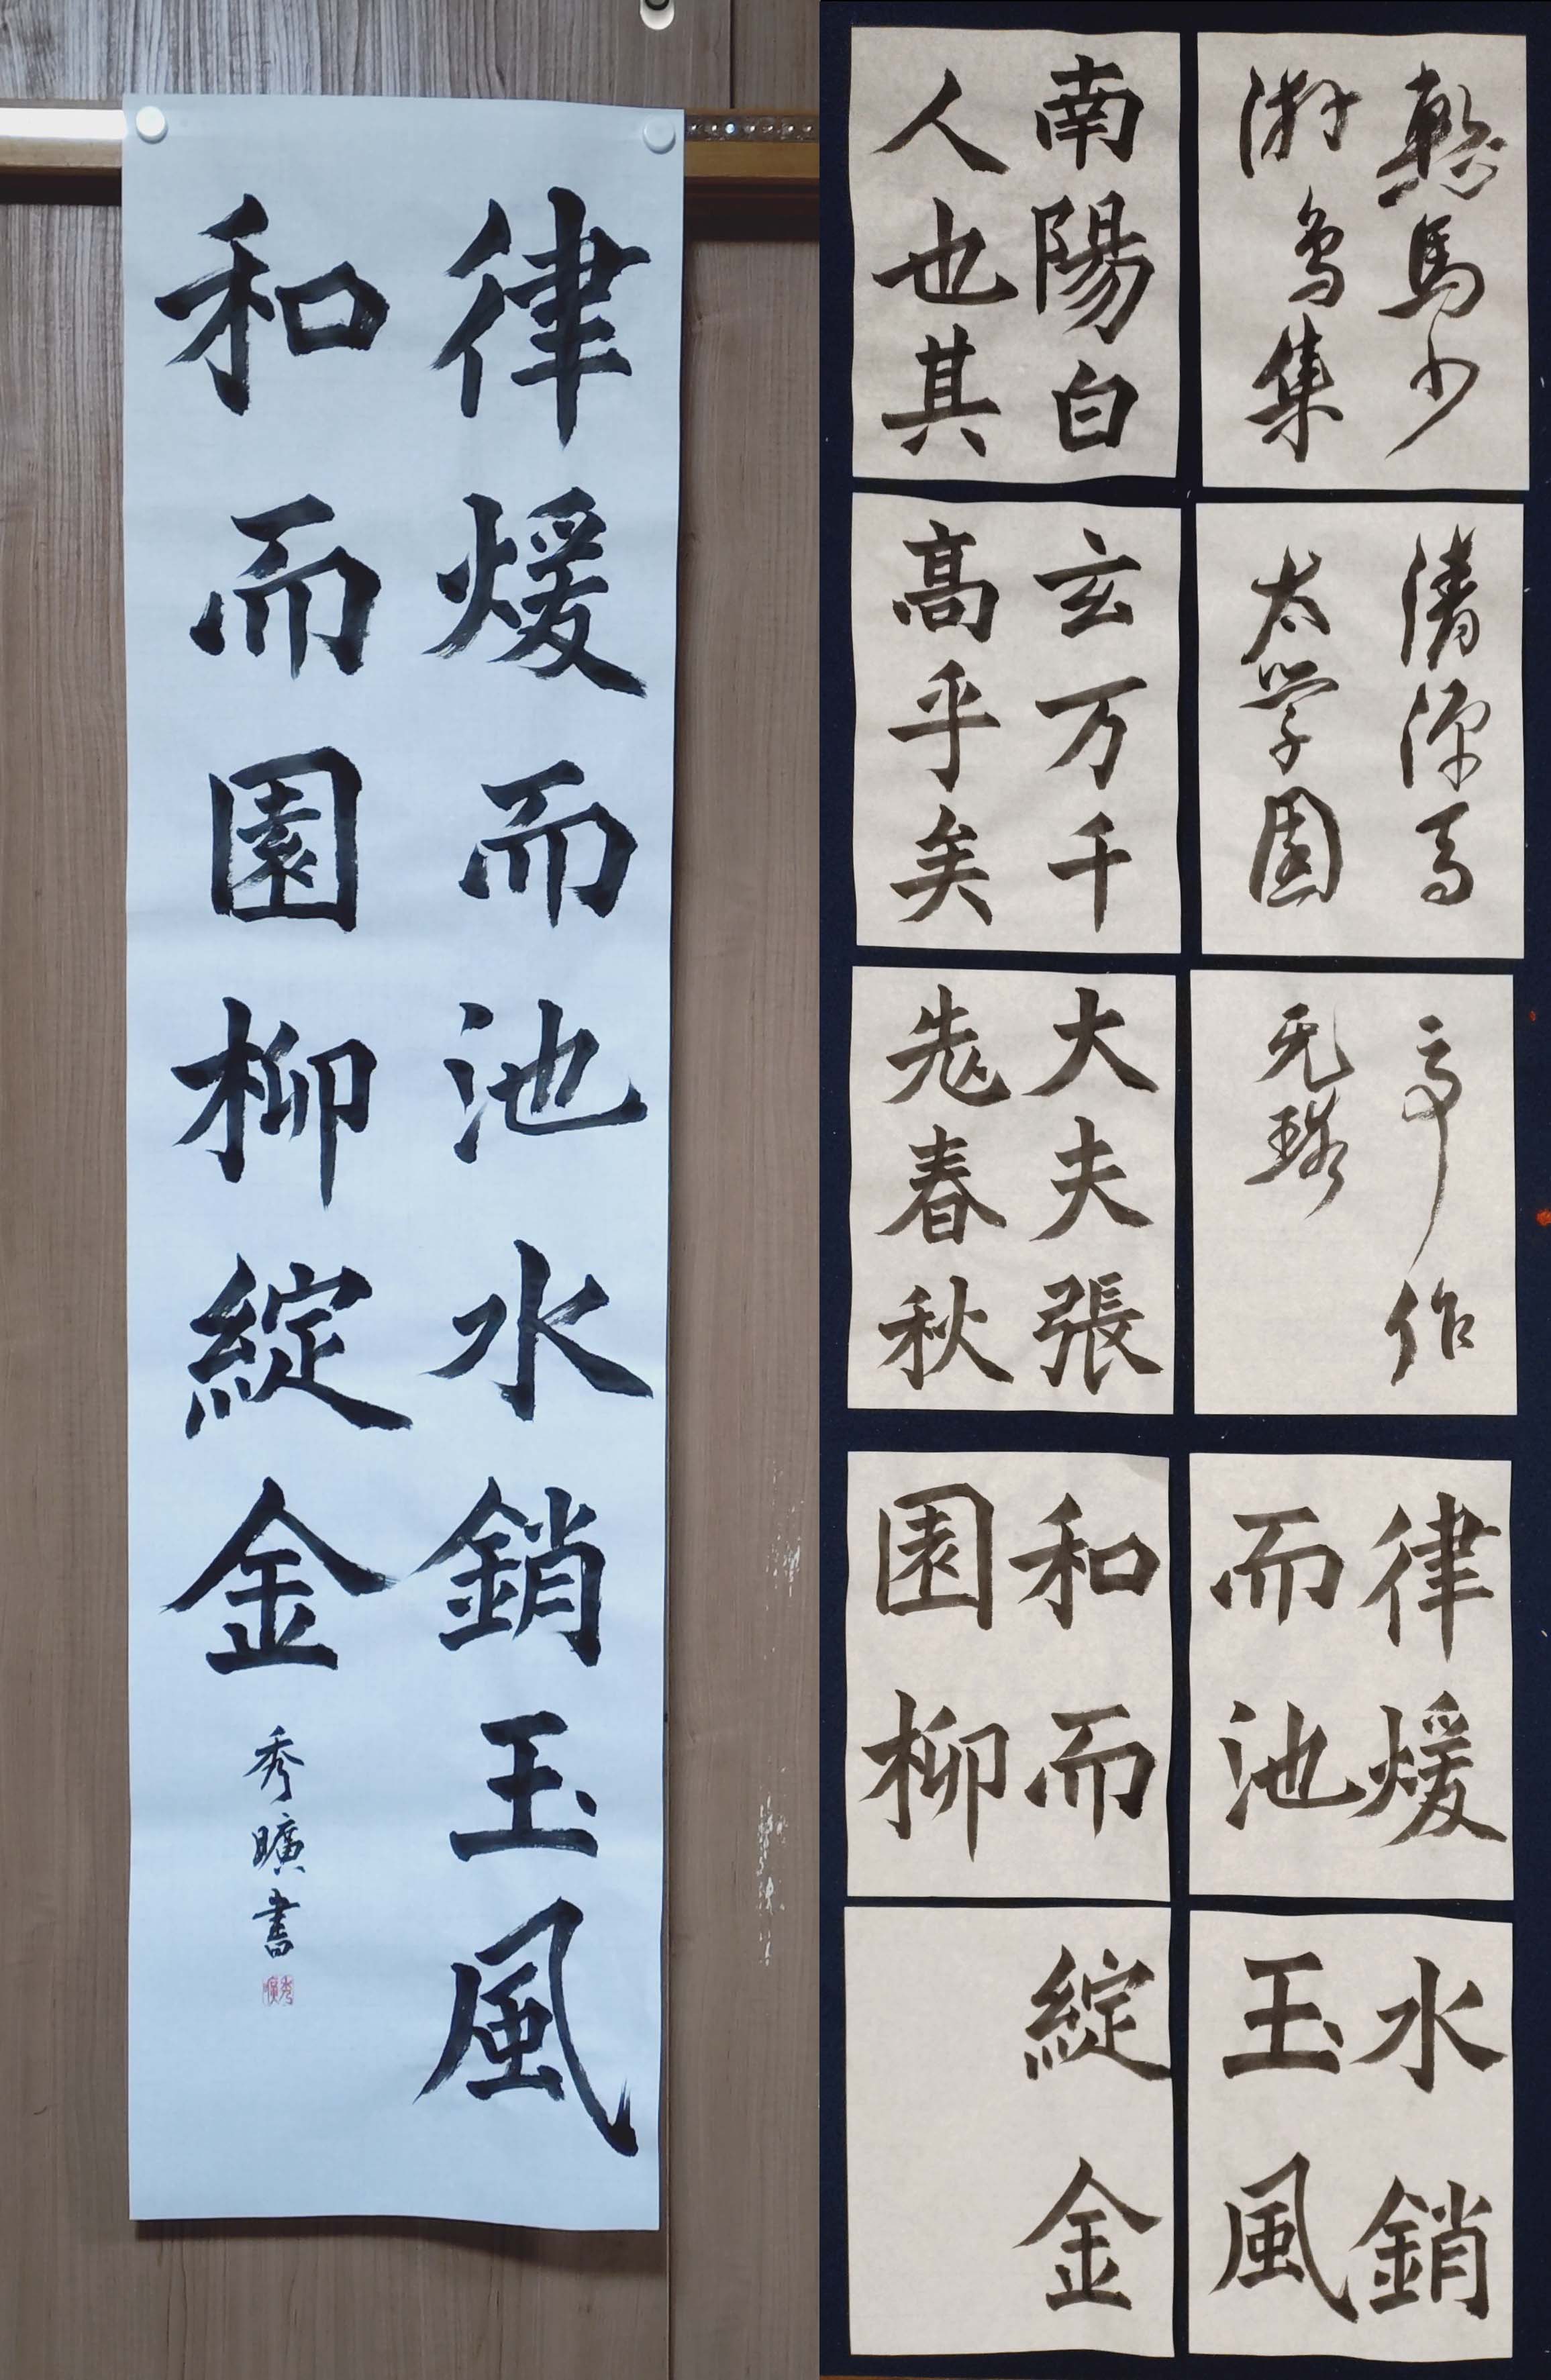 律煖而池水銷玉風
和而園柳綻金
秀曠書
秀曠
馬少
游為集
清源
太学園
亭作
无瑕
南陽白
人也其
玄万千
高乎矣
大夫張
老春秋
律煖
而池
水銷
玉風
和而
園柳
綻金